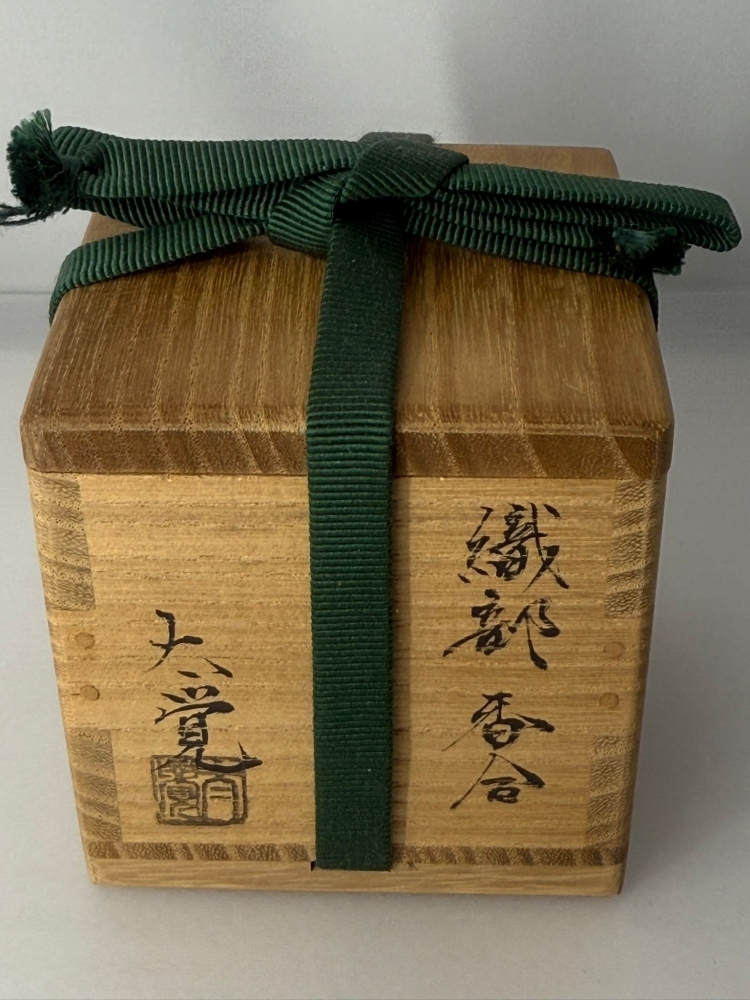 織部 香合
大覚